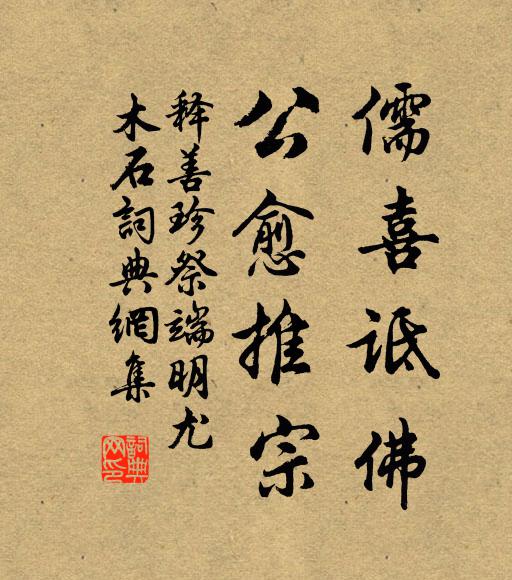 儒喜诋佛
公愈推宗
释善珍祭端明尤
木石詞典網集
詞典网印